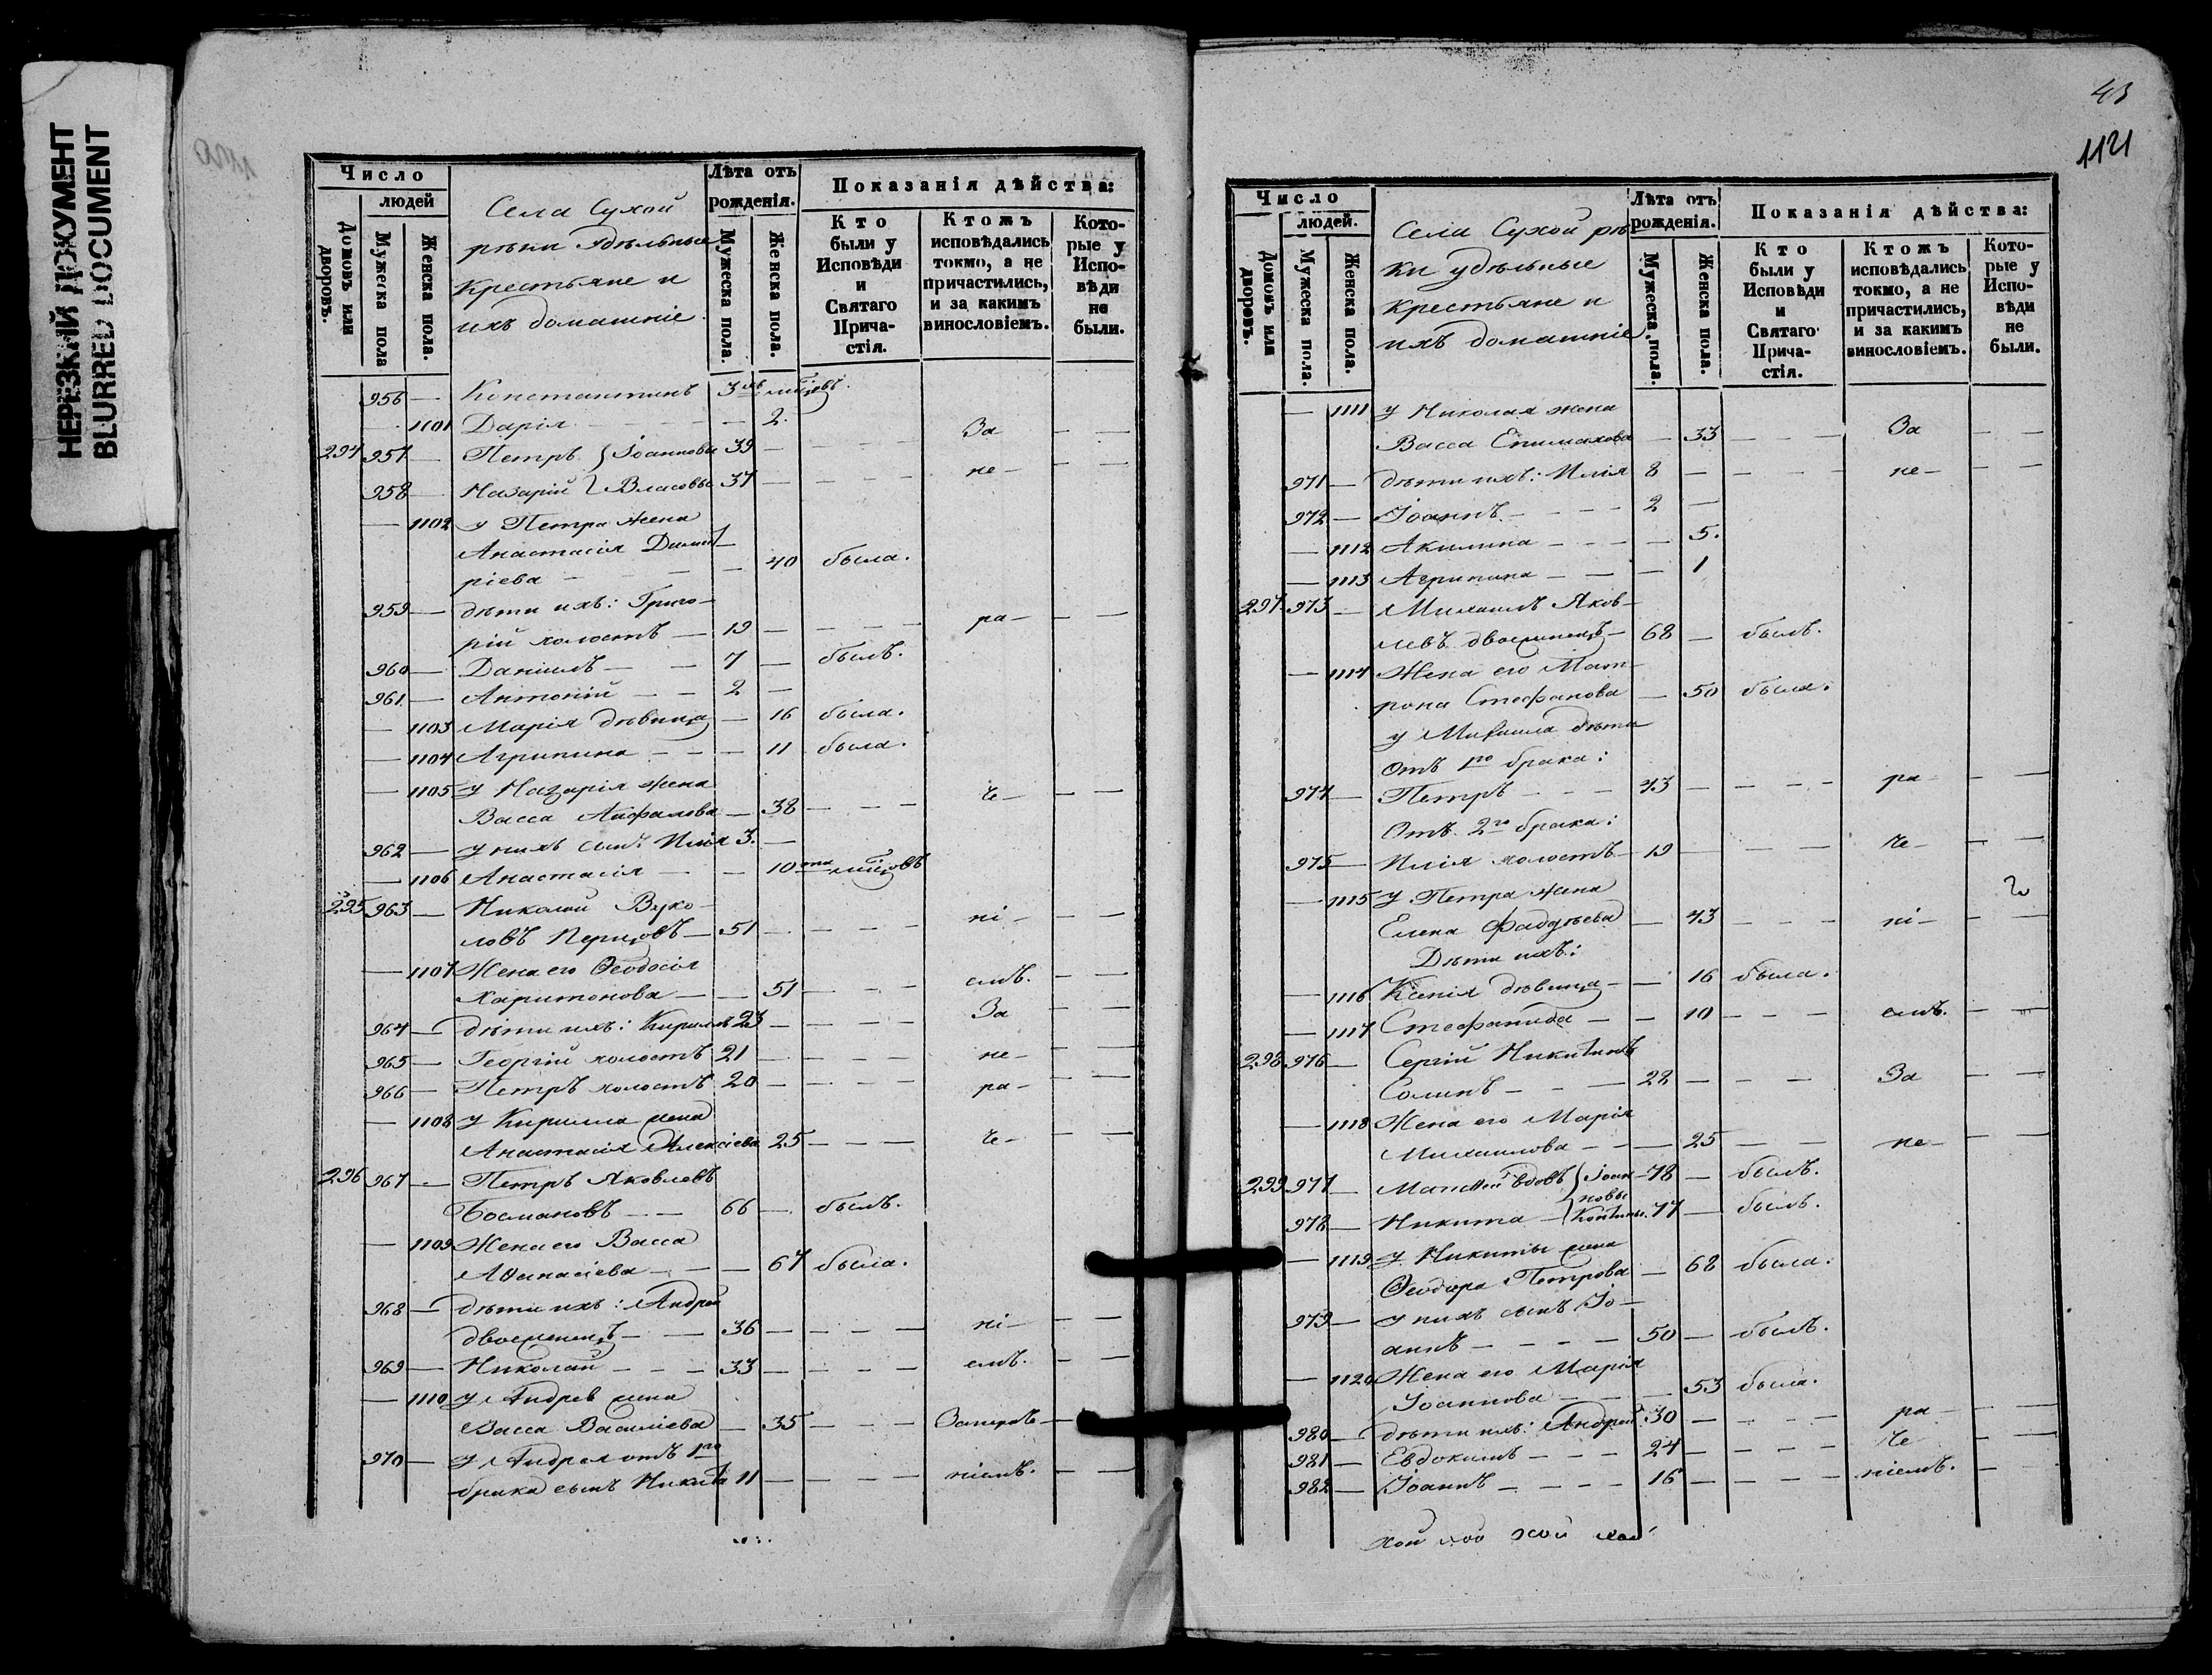 НЕРЕЗКИЙ ДОКУМЕНТ
BLURRED DOCUMENT
Число
людей
Домовъ или дворовъ.
Мужеска пола
Женска пола.
Села Сухой
рѣки удѣльные
крестьяне и
ихъ домашніе.
Лѣта отъ
рожденія.
Мужеска пола.
Женска пола.
Показанія дѣйства:
Кто были у Исповѣди и Святаго Прича-стія.
Ктожъ исповѣдались токмо, а не причастились, и за какимъ винословіемъ.
Кото-рые у Испо-вѣди не были.
956 — Константинъ 3
— 1101 Дарія — 2.
294 957 — Петръ } Іоанновы 39 — За — —
958 — Назарій } Власовы 37 — не — —
— 1102 у Петра жена
Анастасія Димит-
ріева — 40 была.
959 — дѣти ихъ: Григо-
рій холостъ — 19 — ра — —
960 — Даніилъ — 7 — былъ.
961 — Антоній — 2 —
— 1103 Марія дѣвица — 16 была.
— 1104 Агрипина — 11 была.
— 1105 у Назарія жена
Васса — 38 — че — —
962 — у нихъ сынъ Илія 3. —
— 1106 Анастасія — 10
295 963 — Николай Вуко-
ловъ Перцовъ — 51 — ні — —
— 1107 Жена его Ѳеодосія
Харитонова — 51 — емъ. — —
964 — дѣти ихъ: Кириллъ 23 — За — —
965 — Георгій холостъ 21 — не — —
966 — Петръ холостъ 20 — ра — —
— 1108 у Кирилла жена
Анастасія Алексіева 25 — че — —
296 967 — Петръ Яковлевъ
Босмановъ — 66 — былъ.
— 1109 Жена его Васса
Аѳанасіева — 67 была.
968 — дѣти ихъ: Андрей
двоеженецъ — 36 — ні — —
969 — Николай — 33 — емъ. — —
— 1110 у Андрея жена
Васса Василіева — 35 — Занерѣ —
970 — у Андрея отъ 1го
брака сынъ Никита 11 — ніемъ. — —
43
1121
Число
людей.
Домовъ или дворовъ.
Мужеска пола.
Женска пола.
Села Сухой рѣ-
ки удѣльные
крестьяне и
ихъ домашніе
Лѣта отъ
рожденія.
Мужеска пола.
Женска пола.
Показанія дѣйства:
Кто были у Исповѣди и Святаго Прича-стія.
Ктожъ исповѣдались токмо, а не причастились, и за какимъ винословіемъ.
Кото-рые у Испо-вѣди не были.
— 1111 у Николая жена
Васса Епимахова — 33 — За — —
971 — дѣти ихъ: Илія 8 — не — —
972 — Іоаннъ — 2 —
— 1112 Акилина — 5.
— 1113 Агрипина — 1
297 973 — Михаилъ Яков-
левъ двоеженецъ — 68 — былъ.
— 1114 Жена его Мат-
рона Стефанова — 50 была.
у Михаила дѣти
Отъ 1го брака:
974 — Петръ — 43 — ра — —
Отъ 2го брака:
975 — Илія холостъ — 19 — че — —
— 1115 у Петра жена
Елена Фаддѣева — 43 — ні — —
Дѣти ихъ:
— 1116 Ксенія дѣвица — 16 была.
— 1117 Стефанида — 10 — емъ. — —
298 976 — Сергій Никитинъ
Сминъ — 28 — За — —
— 1118 Жена его Марія
Михаилова — 25 — не — —
299 977 — Матѳей вдовъ } Іоан- 78 — былъ.
новы
978 — Никита — 77 — былъ.
— 1119 у Никиты жена
Ѳеодора Петрова — 68 была.
979 — у нихъ сынъ Іо-
аннъ — 50 — былъ.
— 1120 Жена его Марія
Іоаннова — 53 была.
980 — дѣти ихъ: Андрей 30 — ра — —
981 — Евдокимъ — 24 — че — —
982 — Іоаннъ — 16 — ніемъ. —